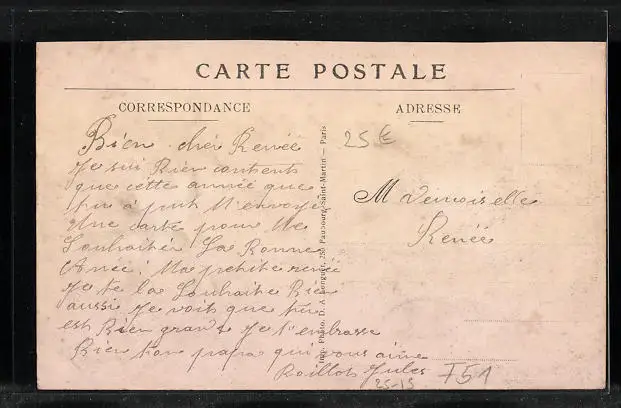 CARTE POSTALE
CORRESPONDANCE
ADRESSE
Bien chéi Renée
Je sui Bien contents
que cette année que
tu à put M'envoyé
Une carte pour Me
Souhaitée La Bonne
Anée! Ma petite renée
Je te la Souhaite Bien
aussi Je vois que tu
est Bien grande Je t'embrasse
Bien ton papa qui vous aime
Roillot Jules
Mademoiselle
Renée
25 €
Imp. Photo. D. A. Longuet, 250 Faubourg Saint-Martin — Paris
25-15
F51